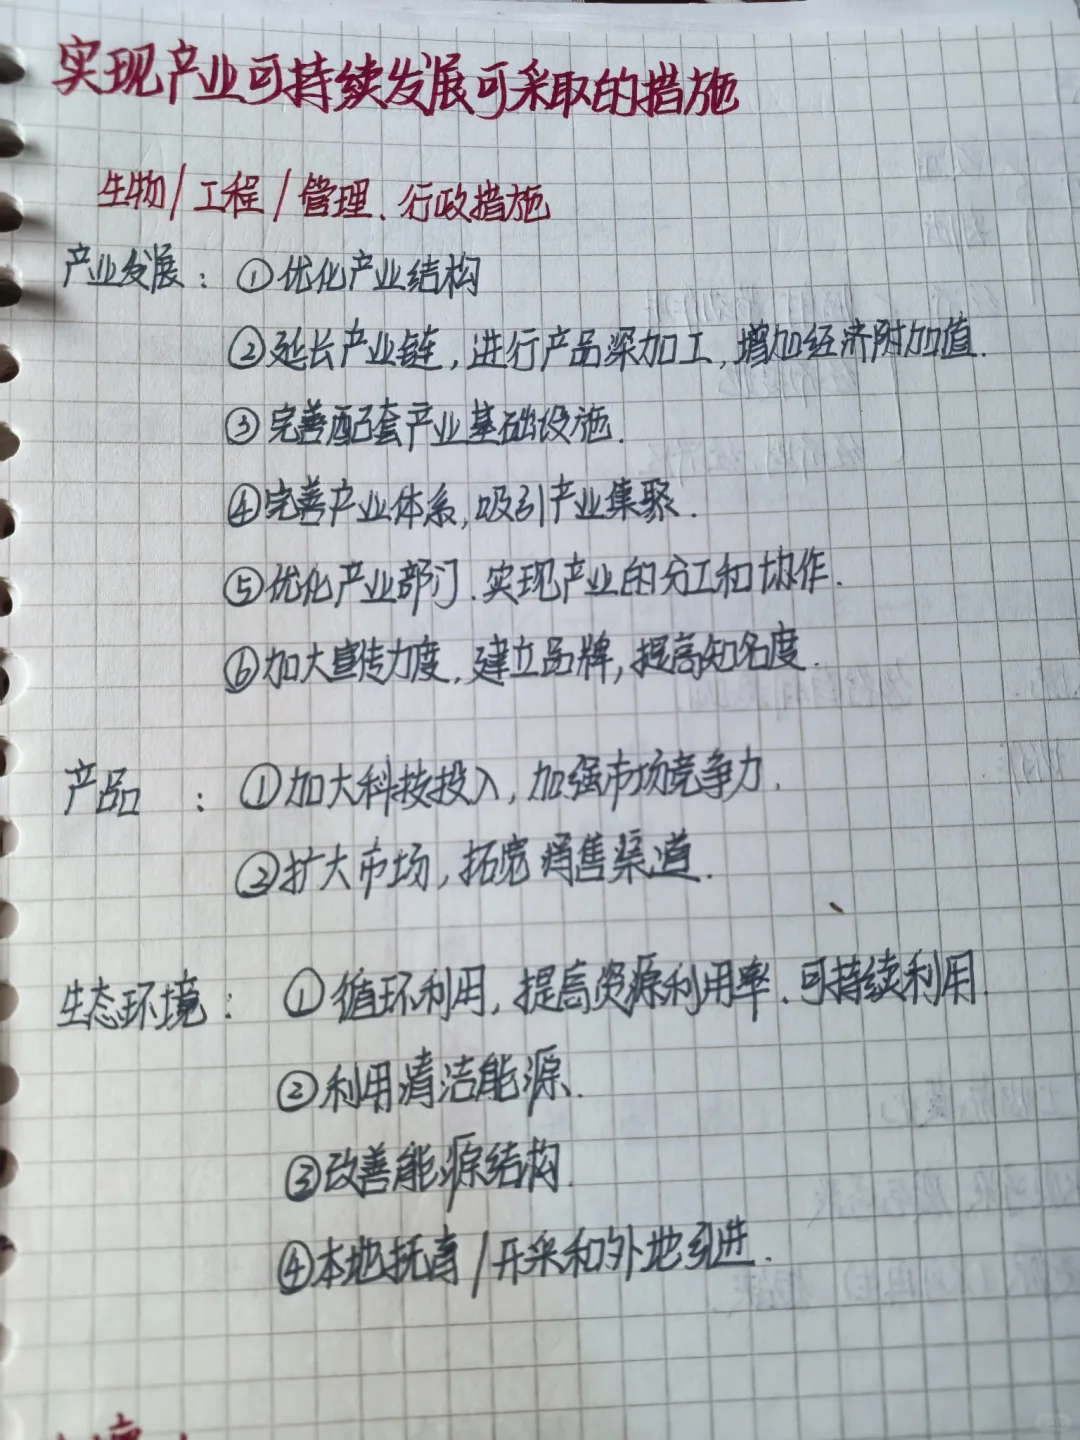 实现产业可持续发展可采取的措施
生物/工程/管理、行政措施
产业发展：①优化产业结构
②延长产业链,进行产品深加工,增加经济附加值.
③完善配套产业基础设施.
④完善产业体系,吸引产业集聚.
⑤优化产业部门.实现产业的分工和协作.
⑥加大宣传力度,建立品牌,提高知名度.
产品：①加大科技投入,加强市场竞争力.
②扩大市场,拓宽销售渠道.
生态环境：①循环利用,提高资源利用率.可持续利用.
②利用清洁能源.
③改善能源结构.
④本地抚育/开采和外地引进.